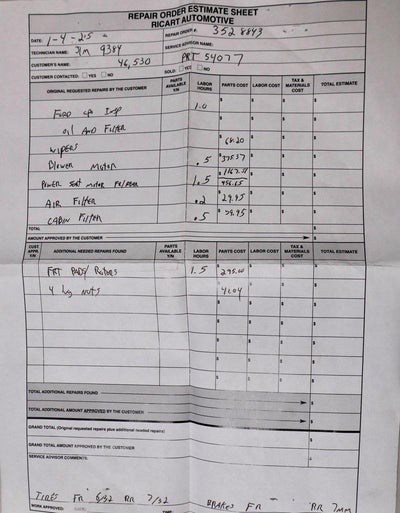 REPAIR ORDER ESTIMATE SHEET
RICART AUTOMOTIVE
DATE: 1-4-25 REPAIR ORDER #: 3528843
TECHNICIAN NAME: Jim 9384 SERVICE ADVISOR NAME:
CUSTOMER'S NAME: 46,530 PRT 54077
CUSTOMER CONTACTED: YES NO SOLD: YES NO
ORIGINAL REQUESTED REPAIRS BY THE CUSTOMER PARTS AVAILABLE Y/N LABOR HOURS PARTS COST LABOR COST TAX & MATERIALS COST TOTAL ESTIMATE
Insp 1.0 $ $ $ $
oil And Filter $ $ $ $
wipers $ 68.20 $ $ $
Blower motor .5 $ $ $ $
Power Seat motor 1.5 $ $ $ $
Air Filter .2 $ 29.95 $ $ $
CABIN Filter .5 $ $ $ $
TOTAL $
AMOUNT APPROVED BY THE CUSTOMER $
CUST. APPR. Y/N ADDITIONAL NEEDED REPAIRS FOUND PARTS AVAILABLE Y/N LABOR HOURS PARTS COST LABOR COST TAX & MATERIALS COST TOTAL ESTIMATE
FRT PADS/Rotors 1.5 $ 295.00 $ $ $
4 lug nuts $ 41.04 $ $ $
TOTAL ADDITIONAL REPAIRS FOUND $
TOTAL ADDITIONAL AMOUNT APPROVED BY THE CUSTOMER $
GRAND TOTAL (Original requested repairs plus additional needed repairs)
GRAND TOTAL AMOUNT APPROVED BY THE CUSTOMER
SERVICE ADVISOR COMMENTS:
TIRES FR 8/32 RR 7/32 BRAKES FR RR 7mm
WORK APPROVED: